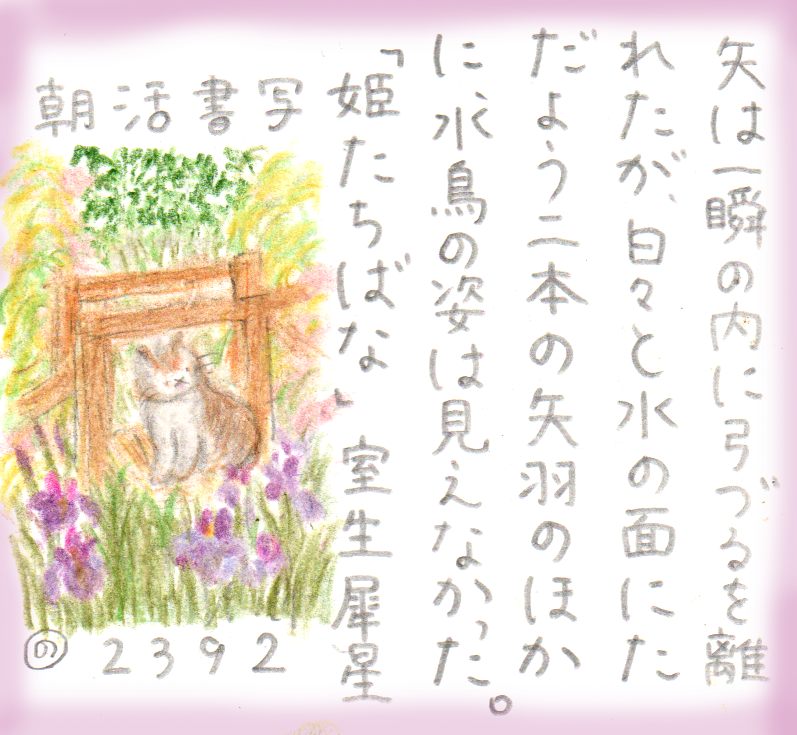 矢は一瞬の内に弓づるを離
れたが、白々と水の面にた
だよう二本の矢羽のほか
に、水鳥の姿は見えなかった。
「姫たちばな」 室生犀星
朝活書写
2392
の